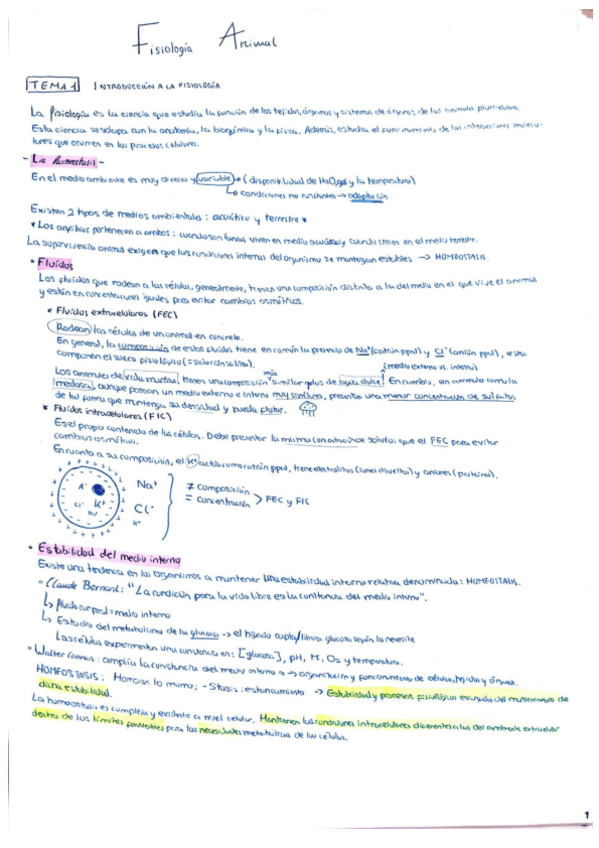 Fisiología Animal
TEMA 1 INTRODUCCIÓN A LA FISIOLOGÍA
La fisiología es la ciencia que estudia la función de los tejidos, órganos y sistemas de órganos de los animales pluricelulares.
Esta ciencia se solapa con la anatomía, la bioquímica y la física. Además, estudia el funcionamiento de las interacciones molecu-
lares que ocurren en los procesos celulares.
- La homeostasis -
En el medio ambiente es muy diverso y variable → (disponibilidad de H2O, gas y la temperatura)
↳ condiciones no constantes → adaptación
Existen 2 tipos de medios ambientales: acuático y terrestre *
* Los anfibios pertenecen a ambos: cuando son larvas viven en medio acuático y cuando crecen en el medio terrestre.
La supervivencia animal exige que las condiciones internas del organismo se mantengan estables → HOMEOSTASIS.
• Fluidos
Los fluidos que rodean a las células, generalmente, tienen una composición distinta a la del medio en el que vive el animal
y están en concentraciones iguales para evitar cambios osmóticos.
* Fluidos extracelulares (FEC)
Rodean las células de un animal en concreto.
En general, la composición de estos fluidos tiene en común la presencia de Na+ (catión ppal) y Cl- (anión ppal), estos
componen el suero fisiológico (= solución salina).
(medio externo vs. interno)
más
Los animales de vida marina, tienen una composición similar que los de agua dulce. En cambio, un animal como la
medusa, aunque posean un medio externo e interno muy similares, presentan una menor concentración de sulfatos
de tal forma que mantenga su densidad y pueda flotar.
* Fluidos intracelulares (FIC)
Es el propio contenido de las células. Debe presentar la misma concentración de solutos que el FEC para evitar
cambios osmóticos.
En cuanto a su composición, el K+ actúa como catión ppal, tiene electrolitos (iones disueltos) y aniones (proteínas).
A- Na+
Cl- K+ Cl-
Na+ K+
≠ Composición
= Concentración > FEC y FIC
• Estabilidad del medio interno
Existe una tendencia en los organismos a mantener una estabilidad interna relativa denominada: HOMEOSTASIS.
◦ Claude Bernard: "La condición para la vida libre es la constancia del medio interno".
↳ fluido corporal = medio interno
↳ Estudio del metabolismo de la glucosa → el hígado capta/libera glucosa según la necesite
Las células experimentan una constancia en: [glucosa], pH, O2 y temperatura.
◦ Walter Cannon: amplía la constancia del medio interno a → organización y funcionamiento de células, tejidos y órganos.
HOMEOSTASIS: Homeos: lo mismo; - Stasis: estancamiento → Estabilidad y procesos fisiológicos encargados del mantenimiento de
dicha estabilidad.
La homeostasis es compleja y evidente a nivel celular. Mantienen las condiciones intracelulares diferentes a las del ambiente extracelular
dentro de los límites favorables para las necesidades metabólicas de las células.
1